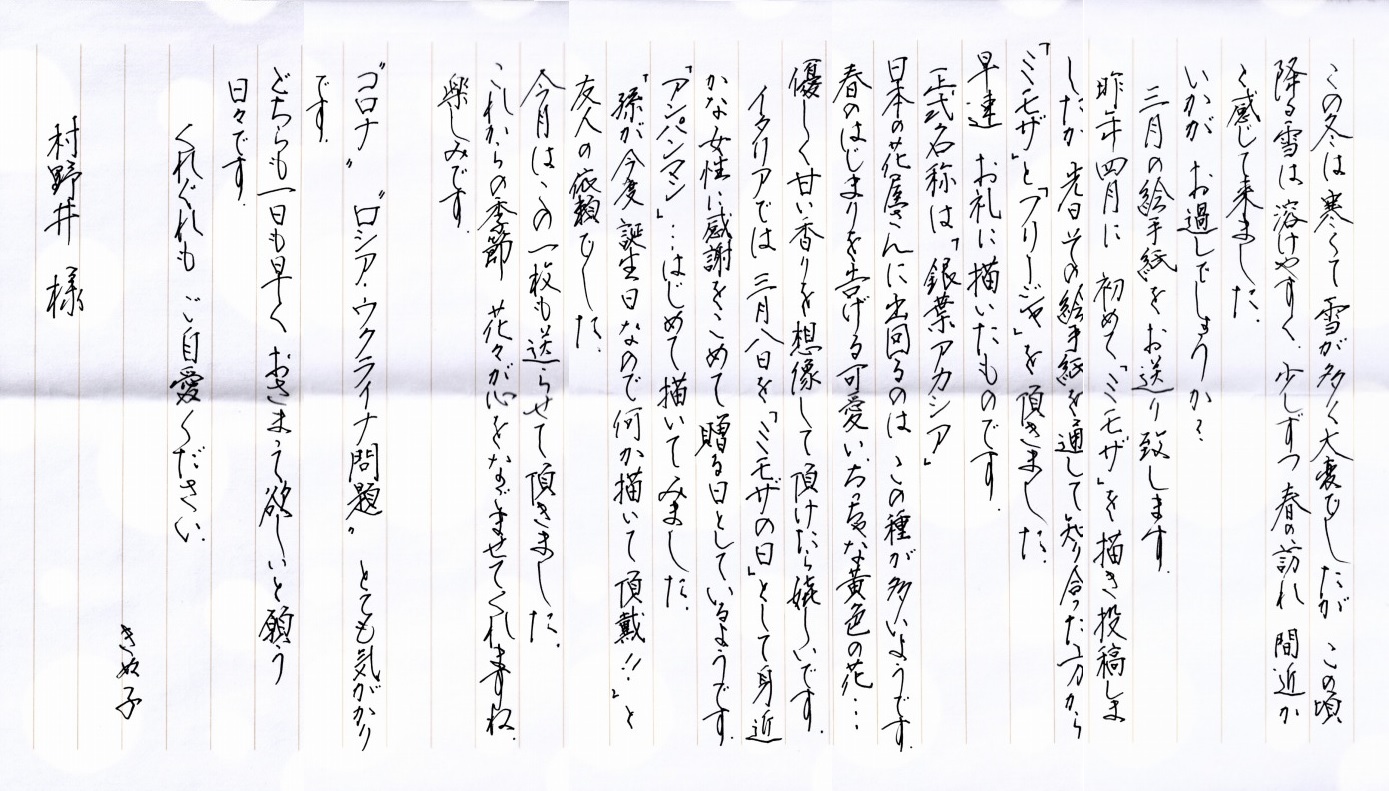 この冬は寒くて 雪が多く大変でしたが この頃
降る雪は溶けやすく 少しずつ 春の訪れ 間近か
く感じて来ました.
いかが お過しでしょうか?
三月の絵手紙をお送り致します.
昨年四月に 初めて「ミモザ」を描き投稿しま
したが 先日その絵手紙を通して知り合った方から
「ミモザ」と「フリージャ」を頂きました.
早速 お礼に描いたものです.
正式名称は「銀葉アカシア」
日本の花屋さんに出回るのは この種が多いようです.
春のはじまりを告げる可愛いちっちゃな黄色の花…
優しく甘い香りを想像して頂けたら嬉しいです.
イタリアでは 三月八日を「ミモザの日」として身近
かな女性に感謝をこめて贈る日としているようです.
「アンパンマン」…はじめて描いてみました.
「孫が今度 誕生日なので何か描いて頂戴!!」と
友人の依頼でした.
今月はこの一枚も送らせて頂きました.
これからの季節 花々が心をなごませてくれますね.
楽しみです.
"コロナ" "ロシア・ウクライナ問題" とても気がかり
です.
どちらも一日も早く おさまって欲しいと願う
日々です.
くれぐれも ご自愛ください.
きぬ子
村野井 様